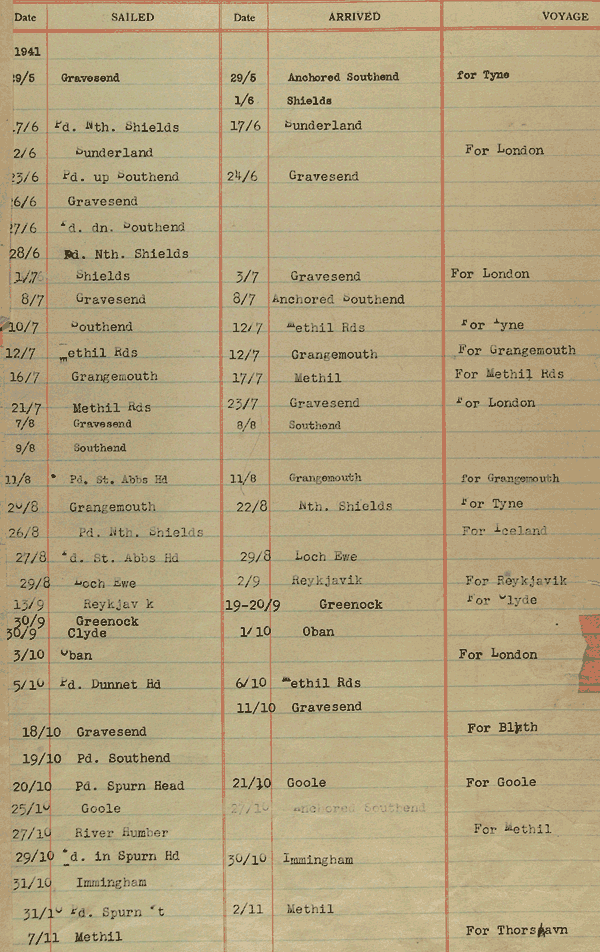 Date SAILED Date ARRIVED VOYAGE
1941
29/5 Gravesend 29/5 Anchored Southend for Tyne
1/6 Shields
17/6 Pd. Nth. Shields 17/6 Sunderland
2/6 Sunderland For London
23/6 Pd. up Southend 24/6 Gravesend
26/6 Gravesend
27/6 Pd. dn. Southend
28/6 Pd. Nth. Shields
1/7 Shields 3/7 Gravesend For London
8/7 Gravesend 8/7 Anchored Southend
10/7 Southend 12/7 Methil Rds For Tyne
12/7 Methil Rds 12/7 Grangemouth For Grangemouth
16/7 Grangemouth 17/7 Methil For Methil Rds
21/7 Methil Rds 23/7 Gravesend For London
7/8 Gravesend 8/8 Southend
9/8 Southend
11/8 Pd. St. Abbs Hd 11/8 Grangemouth for Grangemouth
20/8 Grangemouth 22/8 Nth. Shields For Tyne
26/8 Pd. Nth. Shields For Iceland
27/8 Pd. St. Abbs Hd 29/8 Loch Ewe
29/8 Loch Ewe 2/9 Reykjavik For Reykjavik
13/9 Reykjav k 19-20/9 Greenock For Clyde
30/9 Greenock
30/9 Clyde 1/10 Oban
3/10 Oban For London
5/10 Pd. Dunnet Hd 6/10 Methil Rds
11/10 Gravesend
18/10 Gravesend For Blyth
19/10 Pd. Southend
20/10 Pd. Spurn Head 21/10 Goole For Goole
25/10 Goole 27/10 Anchored Southend
27/10 River Humber For Methil
29/10 Pd. in Spurn Hd 30/10 Immingham
31/10 Immingham
31/10 Pd. Spurn Pt 2/11 Methil
7/11 Methil For Thorshavn